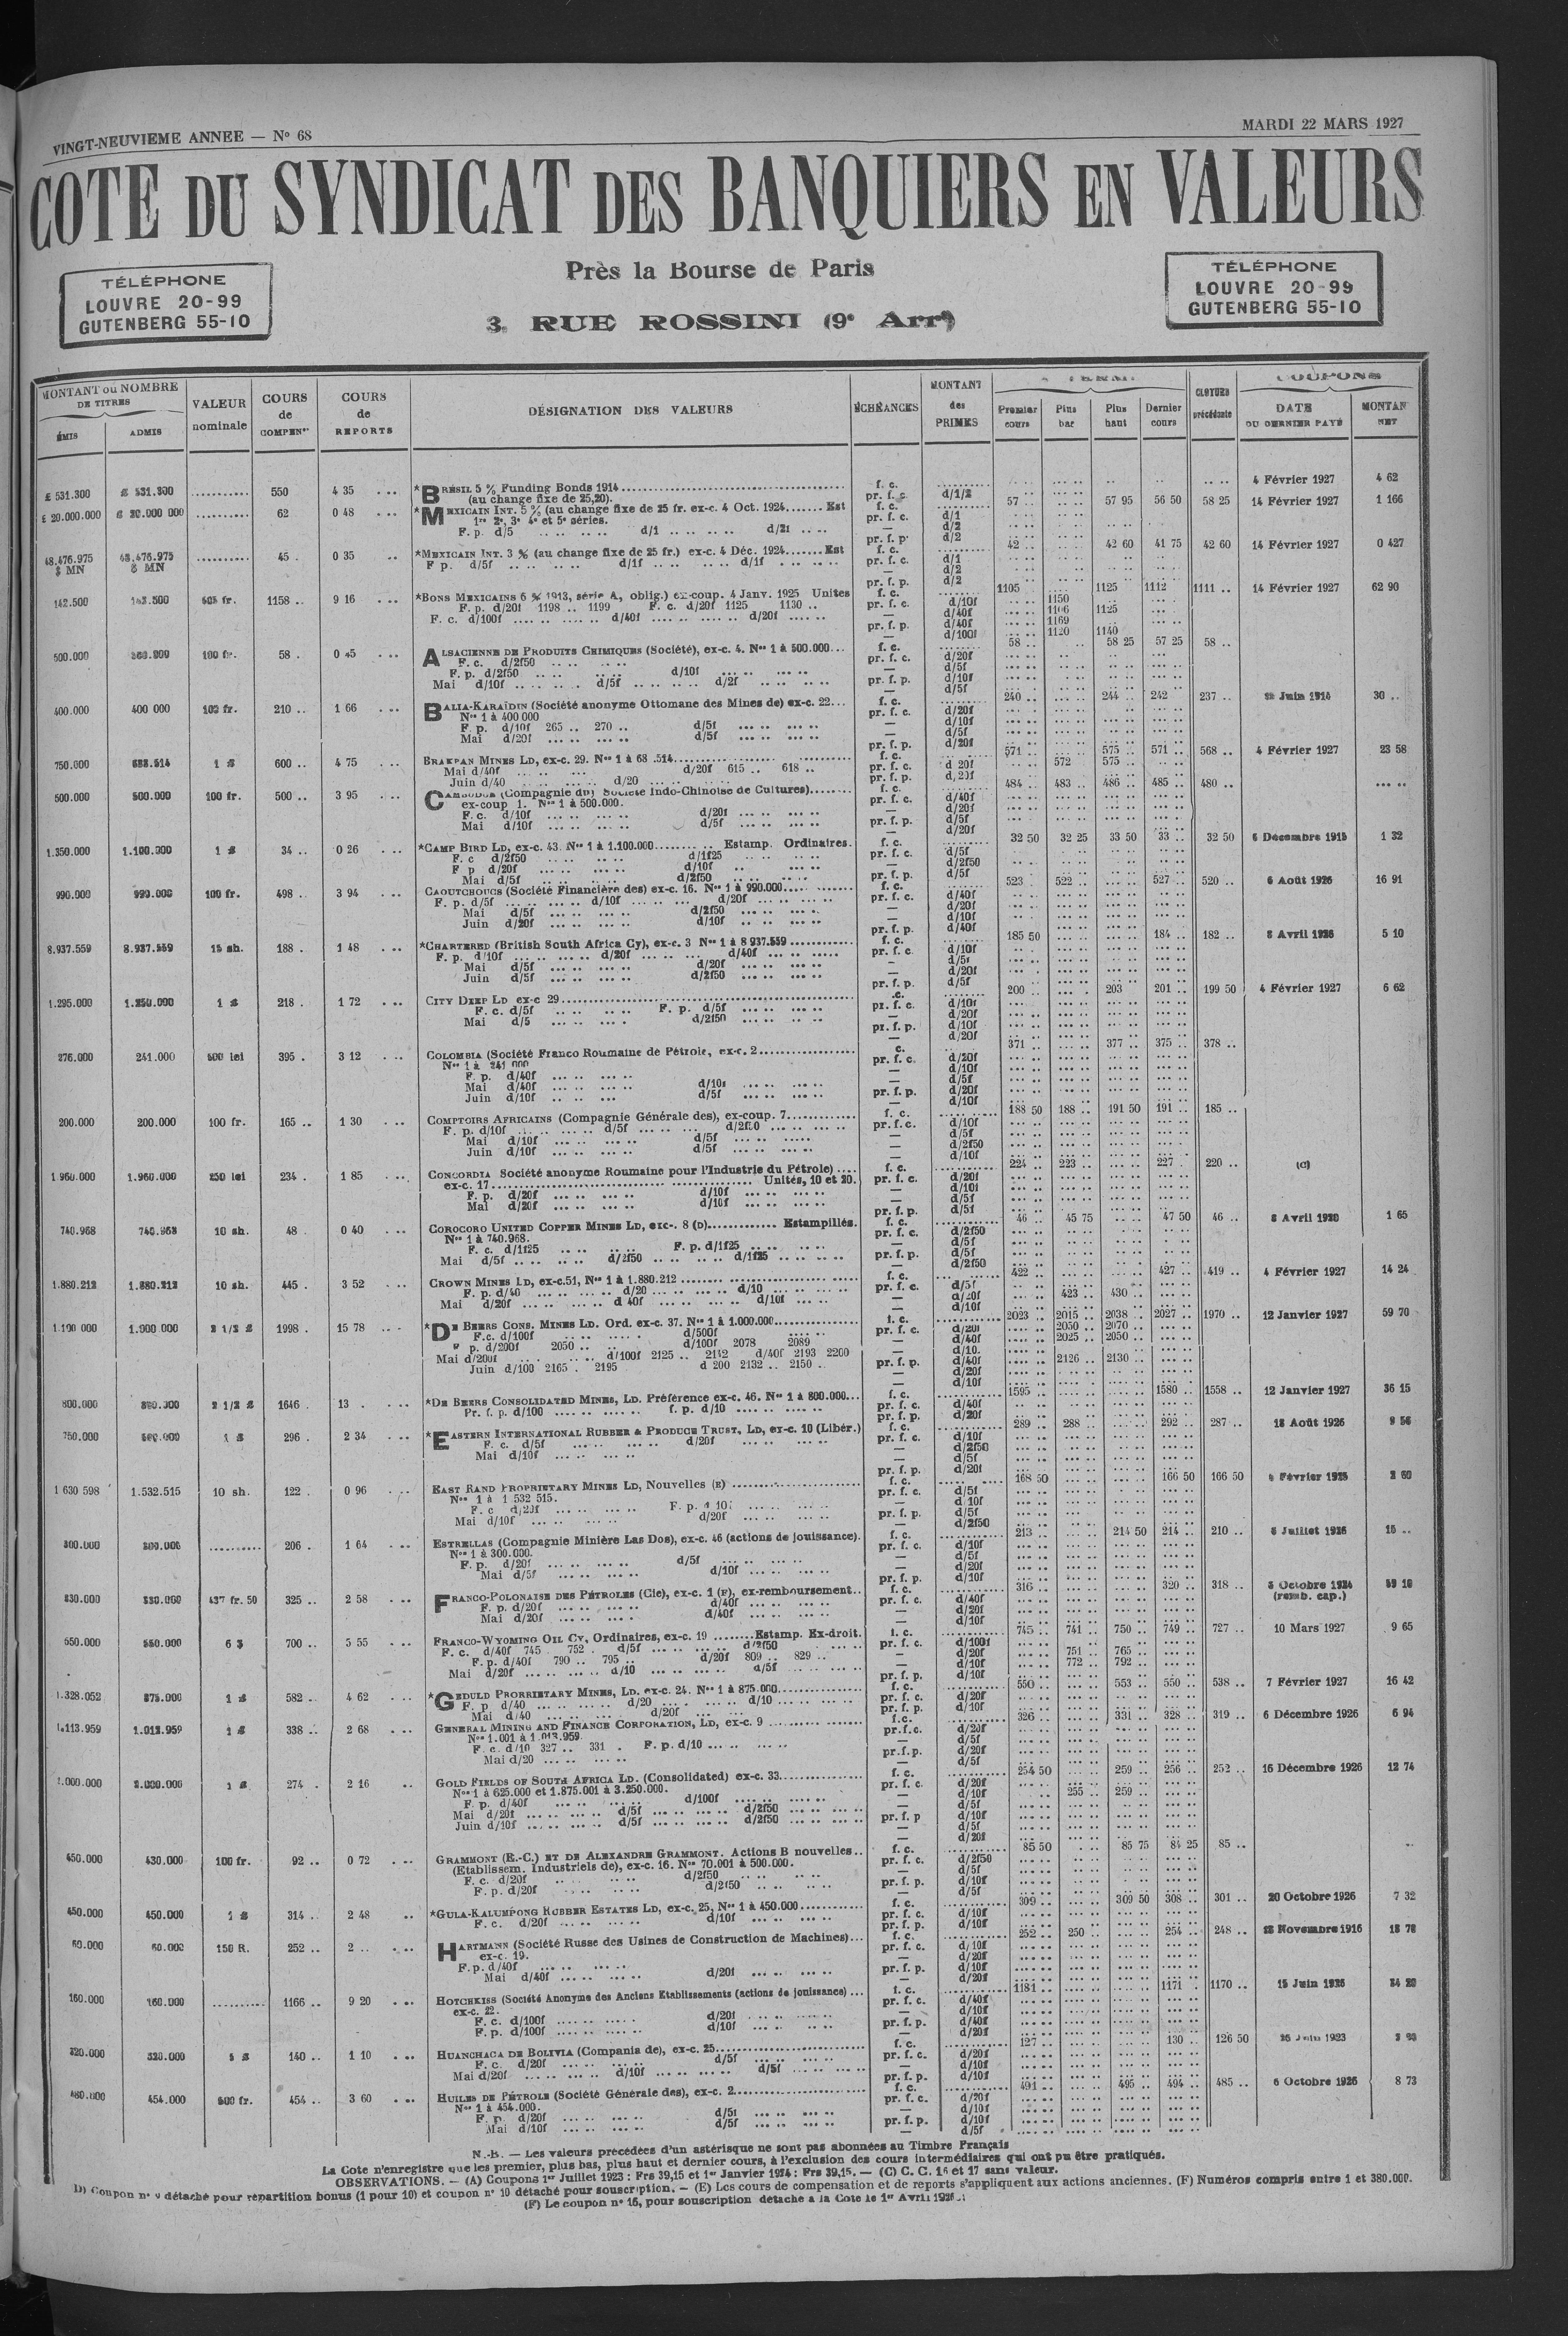 VINGT-NEUVIEME ANNEE — N° 68
MARDI 22 MARS 1927
COTE DU SYNDICAT DES BANQUIERS EN VALEURS
TÉLÉPHONE
LOUVRE 20-99
GUTENBERG 55-10
Près la Bourse de Paris
3, RUE ROSSINI (9e Arrt)
TÉLÉPHONE
LOUVRE 20-99
GUTENBERG 55-10
MONTANT ou NOMBRE DE TITRES
ÉMIS ADMIS
VALEUR nominale
COURS de COMPENon
COURS de REPORTS
DÉSIGNATION DES VALEURS
ÉCHÉANCES
MONTANT des PRIMES
Premier cours Plus bas Plus haut Dernier cours
CLOTURE précédente
COUPONS
DATE DU DERNIER PAYÉ
MONTANT NET
£ 531.300 £ 531.300 .......... 550 4 35 *BRÉSIL 5 % Funding Bonds 1914 f. c. 4 Février 1927 4 62
(au change fixe de 25,20). pr. f. c. d/1/2
£ 20.000.000 £ 20.000 000 .......... 62 0 48 *MEXICAIN INT. 5 % (au change fixe de 25 fr. ex-c. 4 Oct. 1924....... Est f. c. 57 .. 57 95 56 50 58 25 14 Février 1927 1 166
1re 2e, 3e 4e et 5e séries. pr. f. c. d/1
F. p. d/5 d/1 d/21
48.476.975 $ MN 48.476.975 $ MN .......... 45 . 0 35 *MEXICAIN INT. 3 % (au change fixe de 25 fr.) ex-c. 4 Déc. 1924....... Est f. c. 42 .. 42 60 41 75 42 60 14 Février 1927 0 427
F p. d/5f d/1f d/1f pr. f. c. d/1
142.500 142.500 505 fr. 1158 .. 9 16 *BONS MEXICAINS 6 % 1913, série A, oblig.) ex-coup. 4 Janv. 1925 Unités f. c. 1105 1125 1112 1111 .. 14 Février 1927 62 90
F. p. d/20f 1198 .. 1199 F. c. d/20f 1125 1130 .. pr. f. c. d/10f 1150
F. c. d/100f d/40f d/20f d/40f 1106 1125
pr. f. p. d/40f 1169
d/100f 1120 1140
500.000 100 fr. 58 . 0 45 ALSACIENNE DE PRODUITS CHIMIQUES (Société), ex-c. 4. Nos 1 à 500.000... f. c. 58 .. 58 25 57 25 58 ..
F. c. d/2f50 pr. f. c. d/20f
F. p. d/2f50 d/10f d/5f
Mai d/10f d/5f d/2f pr. f. p. d/10f
400.000 400 000 100 fr. 210 .. 1 66 BALIA-KARAÏDIN (Société anonyme Ottomane des Mines de) ex-c. 22... f. c. 240 .. 244 .. 242 237 .. Juin 1914 30 ..
Nos 1 à 400 000 pr. f. c. d/20f
F. p. d/10f 265 .. 270 .. d/5f d/10f
Mai d/20f d/5f d/5f
pr. f. p. d/20f
750.000 688.514 1 £ 600 .. 4 75 BRAKPAN MINES LD, ex-c. 29. Nos 1 à 68 .514 f. c. 571 .. 575 .. 571 .. 568 .. 4 Février 1927 23 58
Mai d/40f d/20f 615 .. 618 .. pr. f. c. d 20f 572 575 ..
Juin d/40 d/20 pr. f. p. d/20f
500.000 500.000 100 fr. 500 .. 3 95 CAMBODGE (Compagnie du) Société Indo-Chinoise de Cultures) f. c. 484 .. 483 .. 486 .. 485 .. 480 ..
ex-coup 1. Nos 1 à 500.000. pr. f. c. d/40f
F. c. d/10f d/20f d/20f
Mai d/10f d/5f pr. f. p. d/5f
1.350.000 1.100.000 1 £ 34 .. 0 26 *CAMP BIRD LD, ex-c. 43. Nos 1 à 1.100.000 Estamp. Ordinaires. f. c. 32 50 32 25 33 50 33 .. 32 50 6 Décembre 1915 1 32
F. c d/2f50 d/1f25 pr. f. c. d/5f
F p d/20f d/10f d/2f50
Mai d/5f d/2f50 pr. f. p. d/5f
990.000 990.000 100 fr. 498 .. 3 94 CAOUTCHOUCS (Société Financière des) ex-c. 16. Nos 1 à 990.000 f. c. 523 . 522 .. 527 .. 520 .. 6 Août 1926 16 91
F. p. d/5f d/10f d/20f pr. f. c. d/40f
Mai d/5f d/2f50 d/20f
Juin d/20f d/10f d/10f
pr. f. p. d/40f
8.937.559 8.937.559 15 sh. 188 . 1 48 *CHARTERED (British South Africa Cy), ex-c. 3 Nos 1 à 8 937.559 f. c. 185 50 184 .. 182 .. 8 Avril 1926 5 10
F. p. d/10f d/20f d/40f pr. f. c. d/10f
Mai d/5f d/20f d/5f
Juin d/5f d/2f50 d/20f
pr. f. p. d/5f
1.295.000 1.250.000 1 £ 218 . 1 72 CITY DEEP LD ex-c 29 .c. 200 .. 203 201 .. 199 50 4 Février 1927 6 62
F. c. d/5f F. p. d/5f pr. f. c. d/10f
Mai d/5 d/2f50 d/20f
pr. f. p. d/10f
d/20f
276.000 241.000 500 lei 395 . 3 12 COLOMBIA (Société Franco Roumaine de Pétrole, ex-c. 2 c. 371 .. 377 .. 375 .. 378 ..
Nos 1 à 241 000 pr. f. c. d/20f
F. p. d/40f d/10f
Mai d/40f d/10f d/5f
Juin d/10f d/5f pr. f. p. d/20f
200.000 200.000 100 fr. 165 .. 1 30 COMPTOIRS AFRICAINS (Compagnie Générale des), ex-coup. 7 f. c. 188 50 188 .. 191 50 191 .. 185 ..
F. p. d/10f d/5f d/2f50 pr. f. c. d/10f
Mai d/10f d/5f d/5f
Juin d/10f d/5f d/2f50
d/10f
1 960.000 1.960.000 250 lei 234 . 1 85 CONCORDIA Société anonyme Roumaine pour l'Industrie du Pétrole) f. c. 224 .. 223 .. 227 . 220 .. (C)
ex-c. 17 Unités, 10 et 20. pr. f. c. d/20f
F. p. d/20f d/10f d/10f
Mai d/20f d/10f d/5f
740.968 740.968 10 sh. 48 0 40 COROCORO UNITED COPPER MINES LD, exc-. 8 (D) Estampillés. f. c. 46 .. 45 75 47 50 46 .. 8 Avril 1920 1 65
Nos 1 à 740.968. pr. f. c. d/2f50
F. c. d/1f25 F. p. d/1f25 d/5f
Mai d/5f d/2f50 d/1f25 pr. f. p. d/5f
d/2f50
1.880.212 1.880.212 10 sh. 445 . 3 52 CROWN MINES LD, ex-c.51, Nos 1 à 1.880.212 f. c. 422 .. 427 .. 419 .. 4 Février 1927 14 24
F. p. d/40 d/20 d/10 pr. f. c. d/5f
Mai d/20f d 40f d/10f d/20f 423 .. 430 ..
d/10f
1.100 000 1.000 000 2 1/2 £ 1998 . 15 78 *DE BEERS CONS. MINES LD. Ord. ex-c. 37. Nos 1 à 1.000.000 f. c. 2023 .. 2015 .. 2038 .. 2027 .. 1970 .. 12 Janvier 1927 59 70
F.c. d/100f d/500f pr. f. c. d/20f 2050 .. 2070 ..
p. d/200f 2050 .. d/100f 2078 2089 d/40f 2025 .. 2050 ..
Mai d/200f d/100f 2125 .. 2142 d/40f 2193 2200 d/10.
Juin d/100 2165 . 2195 d 200 2132 .. 2150 .. pr. f. p. d/40f 2126 .. 2130 ..
d/20f
d/10f
800.000 800.000 2 1/2 £ 1646 . 13 . *DE BEERS CONSOLIDATED MINES, LD. Préférence ex-c. 46. Nos 1 à 800.000... f. c. 1595 .. 1580 .. 1558 .. 12 Janvier 1927 36 15
Pr. f. p. d/100 f. p. d/10 pr. f. c. d/40f
pr. f. p. d/20f
750.000 1 £ 296 . 2 34 *EASTERN INTERNATIONAL RUBBER & PRODUCE TRUST, LD, ex-c. 10 (Libér.) f. c. 289 .. 288 .. 292 .. 287 .. 18 Août 1926 9 56
F. c. d/5f d/20f pr. f. c. d/10f
Mai d/10f d/2f50
d/5f
pr. f. p. d/20f
1 630 598 1.532.515 10 sh. 122 . 0 96 EAST RAND PROPRIETARY MINES LD, Nouvelles (E) f. c. 168 50 166 50 166 50 Février 1925 2 60
Nos 1 à 1 532 515. pr. f. c. d/5f
F. c d/20f F. p. d 10f d 10f
Mai d/10f d/20f pr. f. p. d/5f
d/2f50
300.000 300.000 .......... 206 . 1 64 ESTRELLAS (Compagnie Minière Las Dos), ex-c. 46 (actions de jouissance). f. c. 213 .. 214 50 214 .. 210 .. 8 Juillet 1926 15 ..
Nos 1 à 300.000. pr. f. c. d/10f
F. p. d/20f d/5f d/5f
Mai d/5f d/10f d/20f
pr. f. p. d/10f
437 fr. 50 325 .. 2 58 FRANCO-POLONAISE DES PÉTROLES (Cie), ex-c. 1 (F), ex-remboursement.. f. c. 316 .. 320 .. 318 .. Octobre 1924 (remb. cap.)
F. p. d/20f d/40f pr. f. c. d/40f
Mai d/20f d/40f d/20f
d/10f
550.000 550.000 6 $ 700 .. 5 55 FRANCO-WYOMING OIL CY, Ordinaires, ex-c. 19 ........Estamp. Ex-droit. f. c. 745 .. 741 .. 750 .. 749 .. 727 .. 10 Mars 1927 9 65
F. c. d/40f 745 752 . d/5f d/2f50 pr. f. c. d/100f
F. p. d/40f 790 .. 795 .. d/20f 809 .. 829 .. d/20f 751 .. 765 ..
Mai d/20f d/10 d/5f d/10f 772 .. 792 ..
pr. f. p. d/10f
1.328.052 875.000 1 £ 582 .. 4 62 *GEDULD PRORRIETARY MINES, LD. ex-c. 24. Nos 1 à 875.000 f. c. 550 .. 553 .. 550 .. 538 .. 7 Février 1927 16 42
F. p d/40 d/20 d/10 pr. f. c. d/20f
Mai d/40 d/20f pr. f. p. d/10f
1.113.959 1.013.959 1 £ 338 .. 2 68 GENERAL MINING AND FINANCE CORPORATION, LD, ex-c. 9 f.c. 326 .. 331 .. 328 .. 319 .. 6 Décembre 1926 6 94
Nos 1.001 à 1.013.959. pr.f.c. d/20f
F. c. d/10 327 .. 331 . F. p. d/10 d/5f
Mai d/20 pr.f.p. d/20f
d/5f
2.000.000 2.000.000 1 £ 274 . 2 16 GOLD FIELDS OF SOUTH AFRICA LD. (Consolidated) ex-c. 33 f. c. 254 50 259 .. 256 .. 252 .. 16 Décembre 1926 12 74
Nos 1 à 625.000 et 1.875.001 à 3.250.000. pr. f. c. d/20f
F. p. d/40f d/100f d/10f 255 .. 259 ..
Mai d/20f d/5f d/2f50 d/5f
Juin d/10f d/5f d/2f50 pr. f. p d/10f
d/5f
d/20f
450.000 430.000 100 fr. 92 .. 0 72 GRAMMONT (E.-C.) ET DE ALEXANDRE GRAMMONT. Actions B nouvelles.. f. c. 85 50 85 75 84 25 85 ..
(Etablissem. Industriels de), ex-c. 16. Nos 70.001 à 500.000. pr. f. c. d/2f50
F. c. d/20f d/2f50 d/5f
F. p. d/20f d/2f50 pr. f. p. d/10f
d/5f
450.000 450.000 1 £ 314 . 2 48 *GULA-KALUMPONG RUBBER ESTATES LD, ex-c. 25, Nos 1 à 450.000 f. c. 309 .. 309 50 308 .. 301 .. 20 Octobre 1926 7 32
F. c. d/20f d/10f pr. f. c. d/10f
pr. f. p. d/10f
60.000 60.000 150 R. 252 .. 2 .. HARTMANN (Société Russe des Usines de Construction de Machines)... f. c. 252 .. 250 .. 254 .. 248 .. Novembre 1916 18 78
ex-c. 19. pr. f. c. d/10f
F. p. d/40f d/20f
Mai d/40f d/20f pr. f. p. d/10f
d/20f
160.000 160.000 .......... 1166 .. 9 20 HOTCHKISS (Société Anonyme des Anciens Etablissements (actions de jouissance) ... f. c. 1181 .. 1171 . 1170 .. 15 Juin 1926 24 20
ex-c. 22. pr. f. c. d/40f
F. c. d/100f d/20f d/10f
F. p. d/100f d/10f pr. f. p. d/40f
d/20f
320.000 320.000 5 £ 140 .. 1 10 HUANCHACA DE BOLIVIA (Compania de), ex-c. 25 f. c. 127 .. 130 .. 126 50 Juin 1923
F. c. d/20f d/5f pr. f. c. d/20f
Mai d/20f d/10f d/5f d/10f
pr. f. p. d/10f
480.000 454.000 500 fr. 454 .. 3 60 HUILES DE PÉTROLE (Société Générale des), ex-c. 2 f. c. 491 .. 495 .. 494 .. 485 .. 6 Octobre 1926 8 73
Nos 1 à 454.000. pr. f. c. d/20f
F. p. d/20f d/5f d/10f
Mai d/10f d/5f pr. f. p. d/10f
d/5f
N.-B. — Les valeurs précédées d'un astérisque ne sont pas abonnées au Timbre Français
La Cote n'enregistre que les premier, plus bas, plus haut et dernier cours, à l'exclusion des cours intermédiaires qui ont pu être pratiqués.
OBSERVATIONS. — (A) Coupons 1er Juillet 1923 : Frs 39,15 et 1er Janvier 1924 : Frs 39,15. — (C) C. C. 16 et 17 sans valeur.
D) Coupon n° 9 détaché pour répartition bonus (1 pour 10) et coupon n° 10 détaché pour souscription. — (E) Les cours de compensation et de reports s'appliquent aux actions anciennes. (F) Numéros compris entre 1 et 380.000.
(F) Le coupon n° 16, pour souscription détaché à la Cote le 1er Avril 1926.